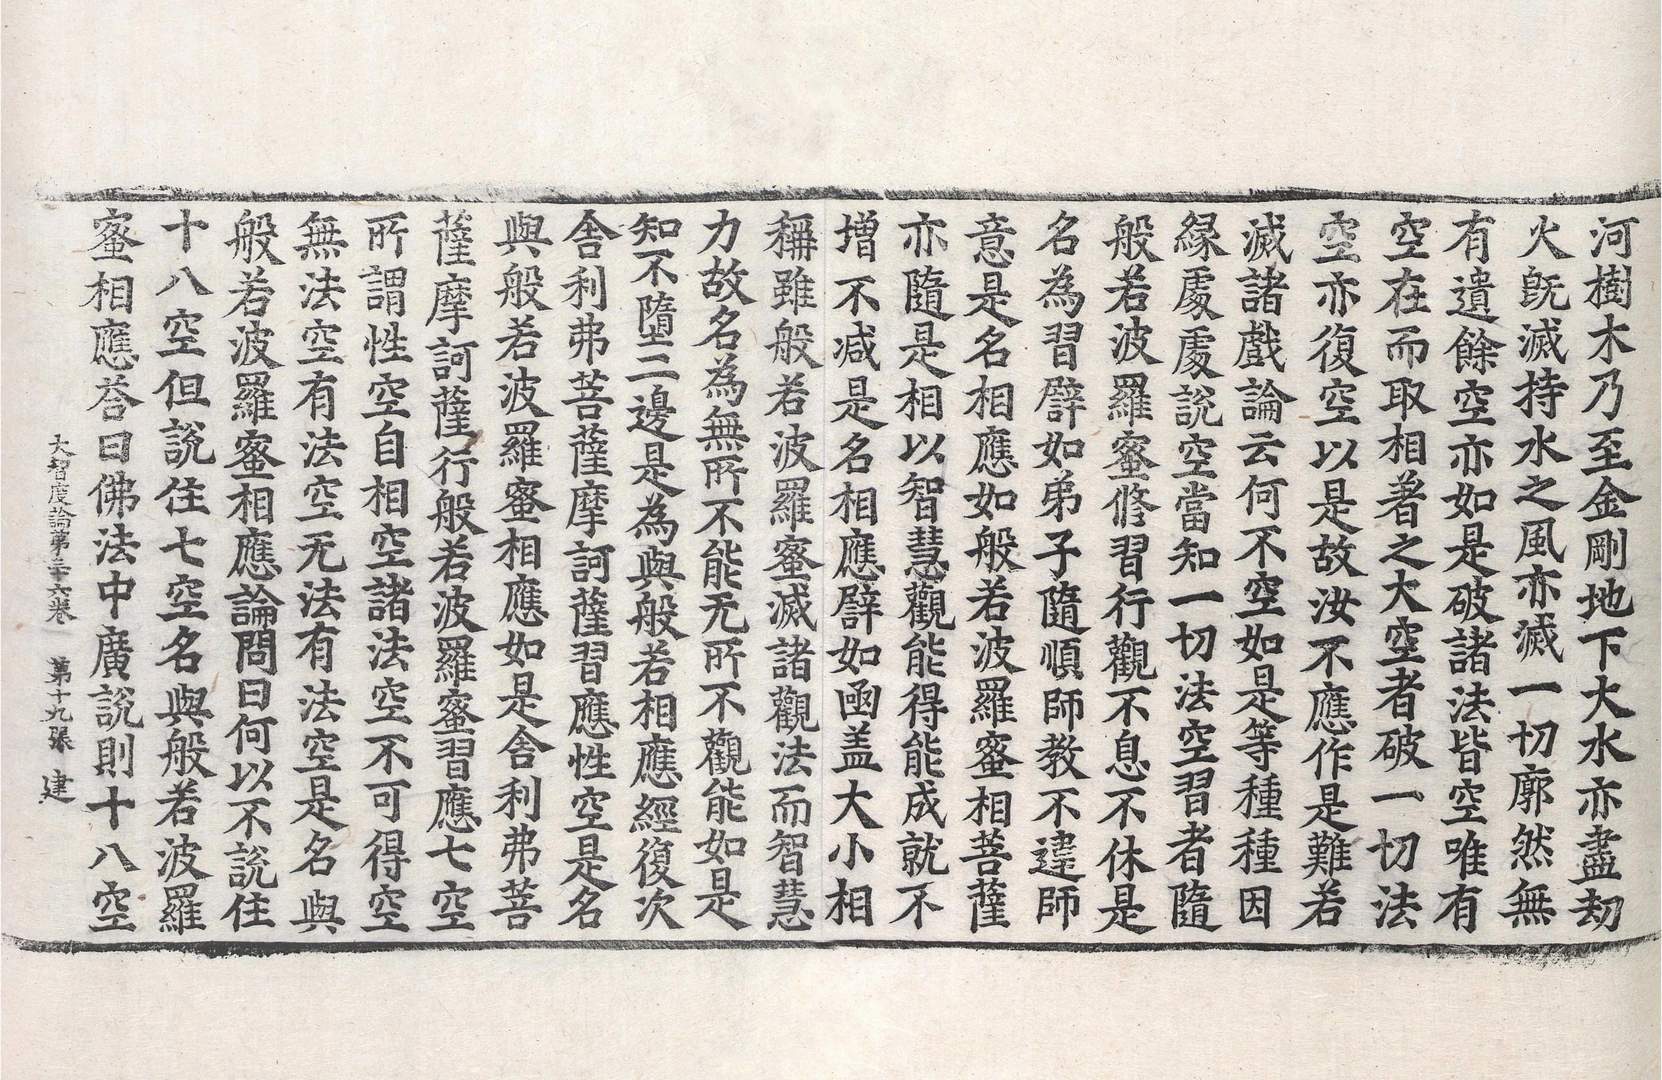 河樹木乃至金剛地下大水亦盡劫
火旣滅持水之風亦滅一切廓然無
有遺餘空亦如是破諸法皆空唯有
空在而取相著之大空者破一切法
空亦復空以是故汝不應作是難若
滅諸戲論云何不空如是等種種因
緣處處說空當知一切法空習者隨
般若波羅蜜修習行觀不息不休是
名為習譬如弟子隨順師教不違師
意是名相應如般若波羅蜜相菩薩
亦隨是相以智慧觀能得能成就不
增不減是名相應譬如函盖大小相
稱雖般若波羅蜜滅諸觀法而智慧
力故名為無所不能无所不觀能如是
知不墮二邊是為與般若相應經復次
舍利弗菩薩摩訶薩習應性空是名
與般若波羅蜜相應如是舍利弗菩
薩摩訶薩行般若波羅蜜習應七空
所謂性空自相空諸法空不可得空
無法空有法空无法有法空是名與
般若波羅蜜相應論問曰何以不說住
十八空但說住七空名與般若波羅
蜜相應荅曰佛法中廣說則十八空
大智度論第三十六卷 第十九張 建